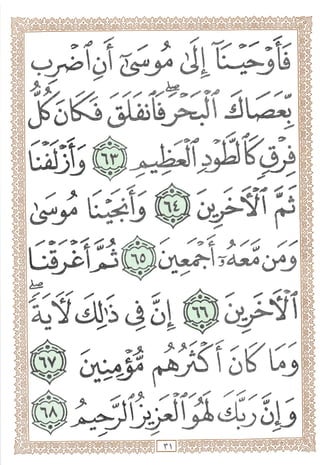 فَأَوۡحَيۡنَآ إِلَىٰ مُوسَىٰٓ أَنِ ٱضۡرِب
بِّعَصَاكَ ٱلۡبَحۡرَۖ فَٱنفَلَقَ فَكَانَ كُلُّ
فِرۡقٖ كَٱلطَّوۡدِ ٱلۡعَظِيمِ ٦٣ وَأَزۡلَفۡنَا
ثَمَّ ٱلۡأٓخَرِينَ ٦٤ وَأَنجَيۡنَا مُوسَىٰ
وَمَن مَّعَهُۥٓ أَجۡمَعِينَ ٦٥ ثُمَّ أَغۡرَقۡنَا
ٱلۡأٓخَرِينَ ٦٦ إِنَّ فِي ذَٰلِكَ لَأٓيَةٗۖ
وَمَا كَانَ أَكۡثَرُهُم مُّؤۡمِنِينَ ٦٧
وَإِنَّ رَبَّكَ لَهُوَ ٱلۡعَزِيزُ ٱلرَّحِيمُ ٦٨
٣١